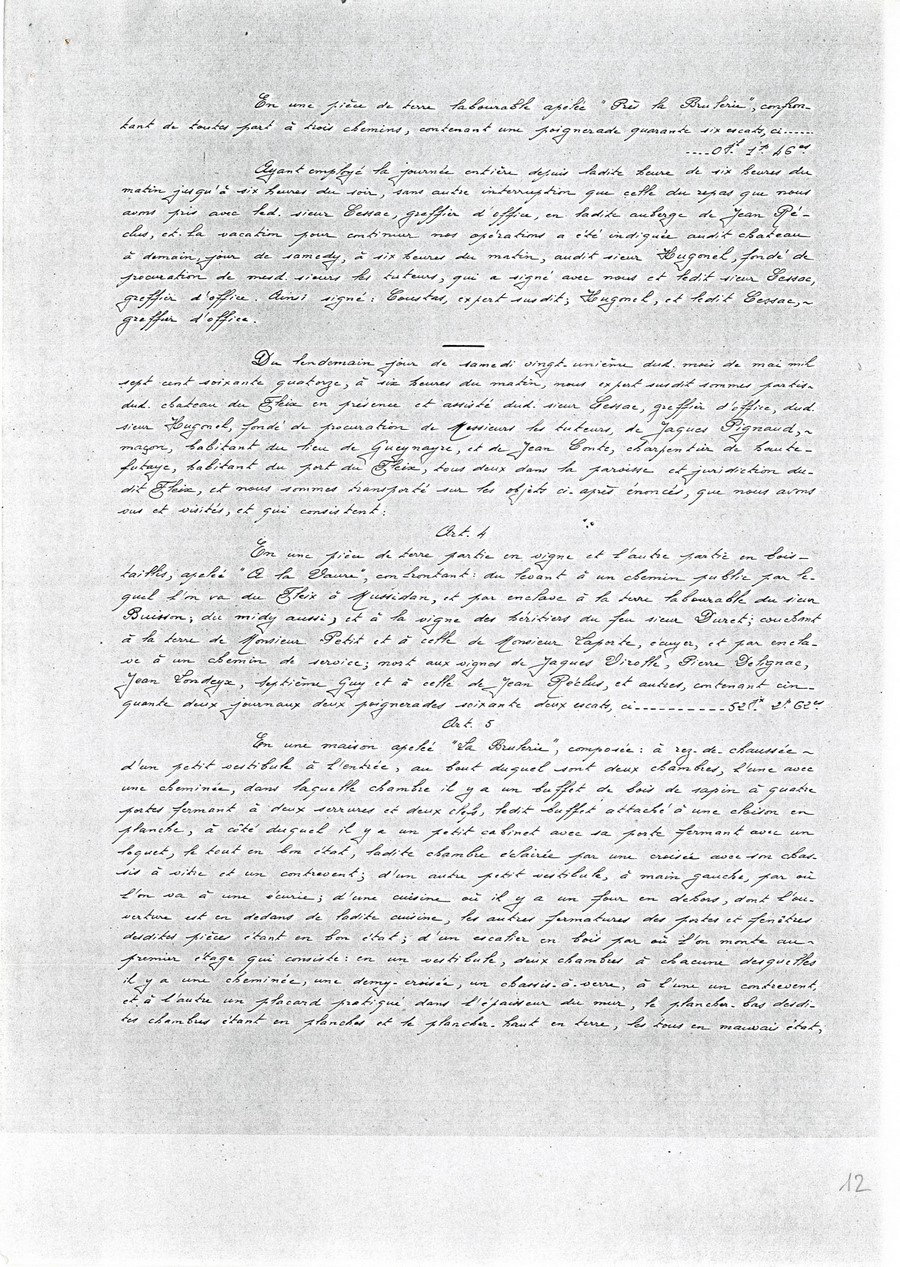 En une pièce de terre labourable apelée "Près la Bruterie", confron-
tant de toutes part à trois chemins, contenant une poignerade quarante six escats, ci......
....0 Jt. 1 P. 46 es
Ayant employé la journée entière depuis ladite heure de six heures du
matin jusqu'à six heures du soir, sans autre interruption que celle du repas que nous
avons pris avec led. sieur Cessac, greffier d'office, en ladite auberge de Jean Ré-
clus, et la vacation pour continuer nos opérations a été indiquée audit chateau
à demain, jour de samedy, à six heures du matin, audit sieur Hugonel, fondé de
procuration de mesd. sieurs les tuteurs, qui a signé avec nous et ledit sieur Cessac,
greffier d'office. Ainsi signé: Coustas, expert susdit; Hugonel, et ledit Cessac,~
greffier d'office.
Du lendemain jour de samedi vingt-unième dud. mois de mai mil
sept cent soixante quatorze, à six heures du matin, nous expert susdit sommes partis-
dud. chateau du Fleix en présence et assisté dud. sieur Cessac, greffier d'office, dud.
sieur Hugonel, fondé de procuration de Messieurs les tuteurs, de Jaques Pignaud,~
maçon, habitant du lieu de Gueynayre, et de Jean Conte, charpentier de haute-
futaye, habitant du port du Fleix, tous deux dans la paroisse et juridiction du-
dit Fleix, et nous sommes transporté sur les objets ci-après énoncés, que nous avons
vus et visités, et qui consistent:
Art. 4
En une pièce de terre partie en vigne et l'autre partie en bois-
taillis, apelée "A la Vaure", confrontant: du levant à un chemin public par le-
quel l'on va du Fleix à Mussidan, et par enclave à la terre labourable du sieur
Buisson; du midy aussi, et à la vigne des héritiers du feu sieur Duret; couchant
à la terre de Monsieur Petit et à celle de Monsieur Laporte, écuyer, et par encla-
ve à un chemin de service; nort aux vignes de Jaques Virolle, Pierre Delignac,
Jean Londeyx, septième Guy et à celle de Jean Réclus, et autres, contenant cin-
quante deux journaux deux poignerades soixante deux escats, ci..........52 Jx. 2 P. 62 es
Art. 5
En une maison apelée "La Bruterie", composée: à rez-de-chaussée ~
d'un petit vestibule à l'entrée, au bout duquel sont deux chambres, l'une avec
une cheminée, dans laquelle chambre il y a un buffet de bois de sapin à quatre
portes fermant à deux serrures et deux clefs, ledit buffet attaché à une cloison en
planche, à côté duquel il y a un petit cabinet avec sa porte fermant avec un
loquet, le tout en bon état, ladite chambre éclairée par une croisée avec son chas-
sis à vitre et un contrevent; d'un autre petit vestibule, à main gauche, par où
l'on va à une écurie; d'une cuisine où il y a un four en dehors, dont l'ou-
verture est en dedans de ladite cuisine, les autres fermatures des portes et fenêtres
desdites pièces étant en bon état; d'un escalier en bois par où l'on monte au-
premier étage qui consiste: en un vestibule, deux chambres à chacune desquelles
il y a une cheminée, une demy-croisée, un chassis-à-verre, à l'une un contrevent,
et à l'autre un placard pratiqué dans l'épaisseur du mur, le plancher-bas desdi-
tes chambres étant en planches et le plancher-haut en terre, les tous en mauvais état;
12